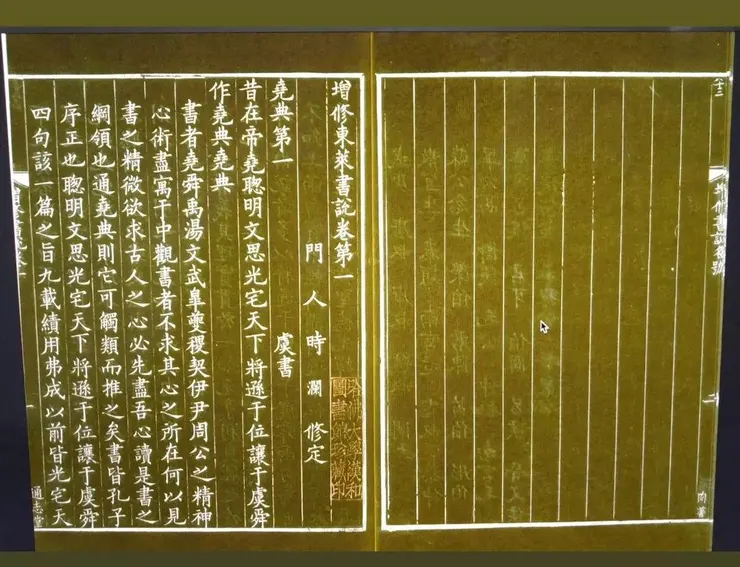 增修東萊書說卷第一
門人時瀾修定
哈佛大學漢和
圖書館珍藏印
堯典第一 虞書
昔在帝堯聰明文思光宅天下將遜于位讓于虞舜
作堯典堯典
書者堯舜禹湯文武皋夔稷契伊尹周公之精神
心術盡寓于中觀書者不求其心之所在何以見
書之精微欲求古人之心必先盡吾心讀是書之
綱領也通堯典則它可觸類而推之矣書皆孔子
序正也聰明文思光宅天下將遜于位讓于虞舜
四句該一篇之旨九載績用弗成以前皆光宅天
通志堂